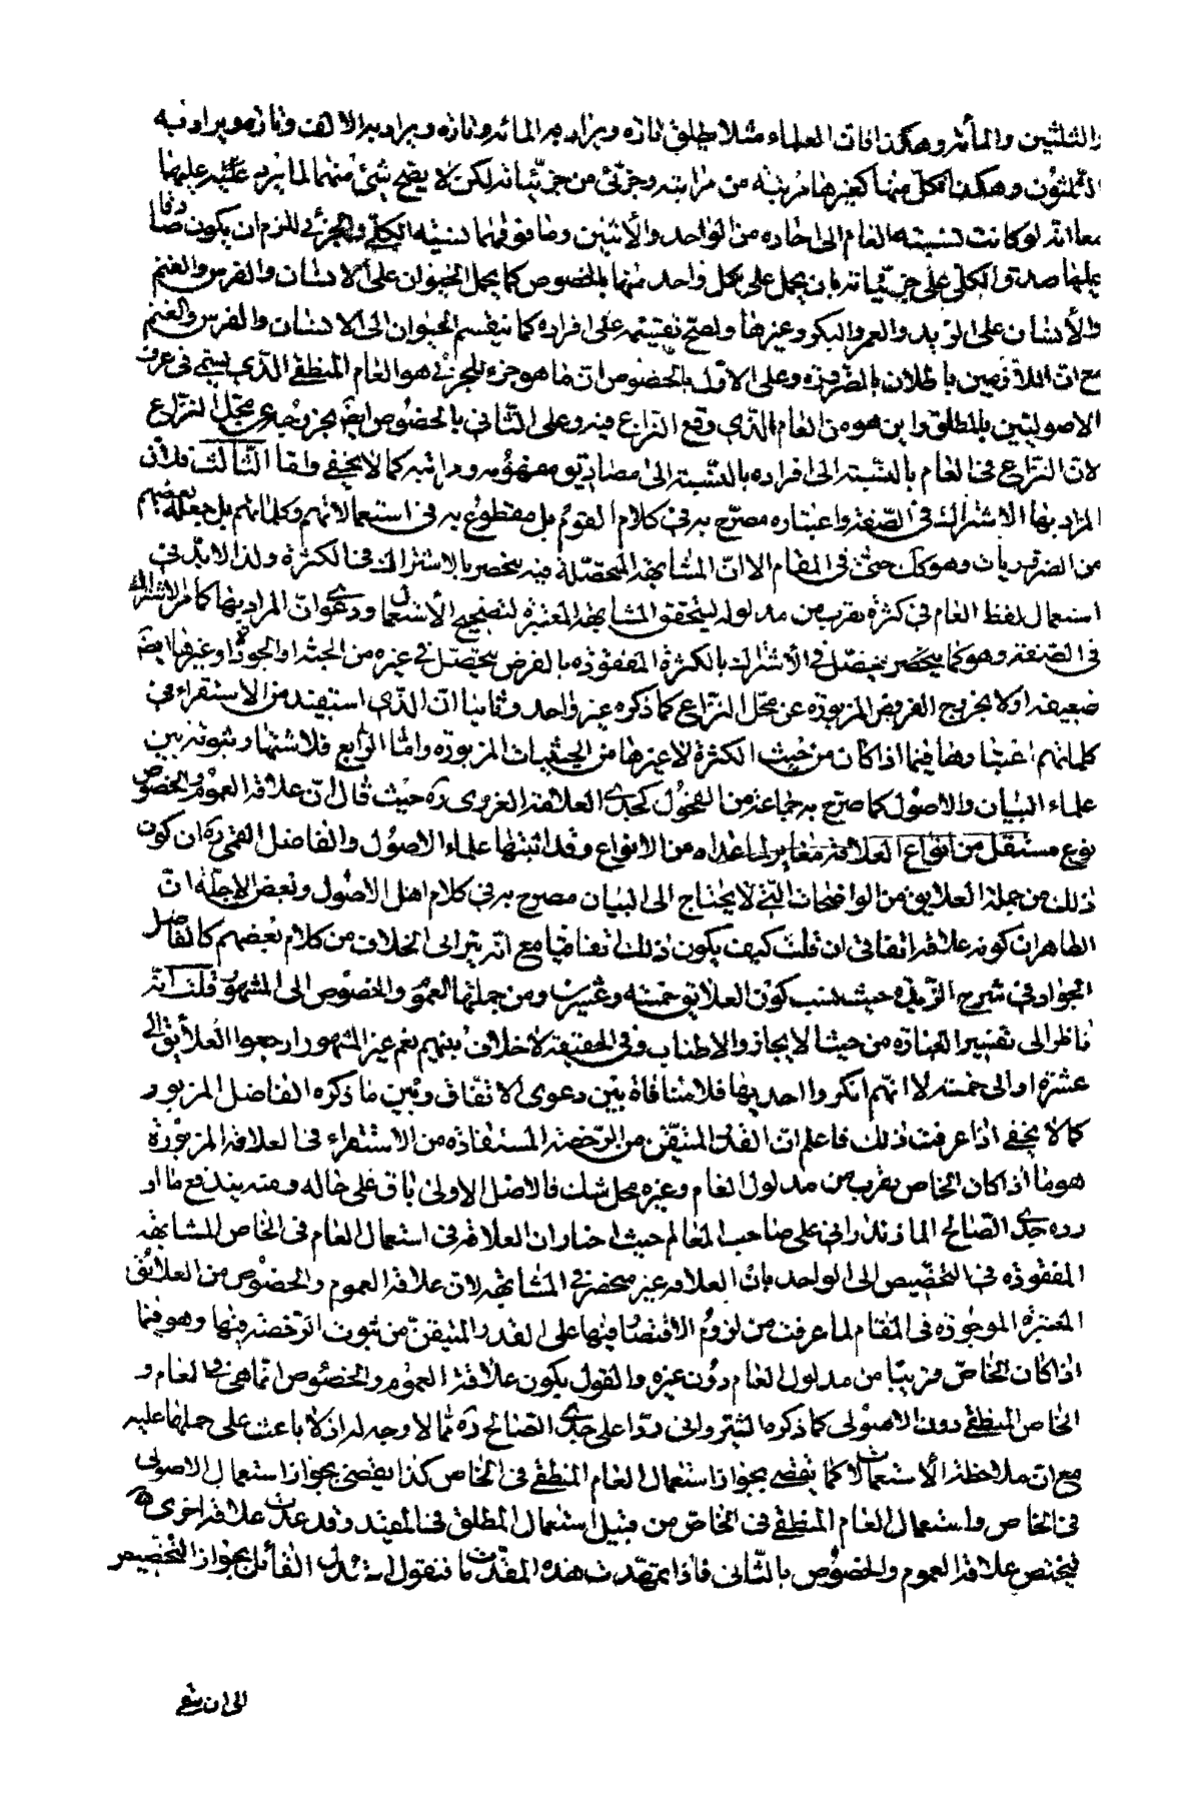 والثلثين والمأة وهكذا فان العلماء مثلا يطلق تارة ويراد به المائة وتارة ويراد به الالف وتارة ويراد به
الثلثون وهكذا فكل منها كغيرها مرتبة من مراتبه وجزئى من جزئياته لكن لا يصح شئ منهما لما يرد عليه عليهما
معا انه لو كانت نسبته العام الى احاده من الواحد والاثنين وما فوقهما نسبة الكلى والجزئى للزم ان يكون صادقا
عليها صدق الكلى على جزئياته بان يحمل على كل واحد منها بالخصوص كما يحمل الحيوان على الانسان والفرس والغنم
والانسان على الزيد والعمرو والبكر وغيرها ولصح تقسيمه على افراده كما ينقسم الحيوان الى الانسان والفرس والغنم
مع ان اللازمين باطلان بالضرورة وعلى الاول بالخصوص ان ما هو جزء للجزئى هو العام المنطقى الذى يسمى فى عرف
الاصوليين بالمطلق واين هو من العام الذى وقع النزاع فيه وعلى الثانى بالخصوص ايضا بخروجه عن محل النزاع
لان النزاع فى العام بالنسبة الى افراده بالنسبة الى مصاديق مفهومه ومراتبه كما لا يخفى واما الثالث فلان
المراد بها الاشتراك فى الصفة واعتباره مصرح به فى كلام القوم بل مقطوع به فى استعمالاتهم وكلماتهم بل جعله بعضهم
من الضروريات وهو كك حتى فى المقام الا ان المشابهة المتحصلة فيه ينحصر بالاشتراك فى الكثرة ولذا لابد فى
استعمال لفظ العام فى كثرة بقرب من مدلوله ليتحقق المشابهة المعتبرة لتصحيح الاستعمال ودعوى ان المراد بها كما مر الاشتراك
فى الصفة وهو كما ينحصر يحصل فى الاشتراك بالكثرة المفقودة بالفرض يتحصل فى غيره من الجثة او الجودة او غيرها ايضا
ضعيفة اولا بخروج الفروض المزبورة عن محل النزاع كما ذكره غير واحد وثانيا ان الذى استفيد من الاستقراء فى
كلماتهم اعتبارها فيما اذا كان من حيث الكثرة لا غيرها من الحيثيات المزبورة واما الرابع فلاشتهار ثبوته بين
علماء البيان والاصول كما صرح به جماعة من الفحول كجدى العلامة الغروى ره حيث قال ان علاقة العموم والخصوص
نوع مستقل من انواع العلاقة مغاير لما عداه من الانواع وقد اثبتها علماء الاصول والفاضل القمى ره ان كون
ذلك من جملة العلايق من الواضحات التى لا يحتاج الى البيان مصرح به فى كلام اهل الاصول وبعض الاجلة ان
الظاهر ان كونه علاقة اتفاقى ان قلت كيف يكون ذلك اتفاقيا مع انه يترائى الخلاف من كلام بعضهم كالفاضل
الجواد فى شرح الزبدة حيث نسب كون العلايق خمسة وعشرين ومن جملتها العموم والخصوص الى المشهور قلت انه
ناظر الى تفسير العبارة من حيث الايجاز والاطناب وفى الحقيقة لا خلاف بينهم نعم غير المشهور ارجعوا العلايق الى
عشرة او الى خمسة لا انهم انكروا احديها فلا منافاة بين دعوى الاتفاق وبين ما ذكره الفاضل المزبور
كما لا يخفى اذا عرفت ذلك فاعلم ان القدر المتيقن من الرخصة المستفادة من الاستقراء فى العلاقة المزبورة
هو ما اذا كان الخاص بقرب من مدلول العام وغيره محل شك فالاصل الاولى باق على حاله ومنه يندفع ما او
رده جدى الصالح المازندرانى على صاحب المعالم حيث اختار ان العلاقة فى استعمال العام فى الخاص المشابهة
المفقودة فى التخصيص الى الواحد بان العلاقة غير منحصر فى المشابهة لان علاقة العموم والخصوص من العلايق
المعتبرة الموجودة فى المقام لما عرفت من لزوم الاقتصار فيها على القدر المتيقن من ثبوت الرخصة فيها وهو فيما
اذا كان الخاص قريبا من مدلول العام دون غيره والقول بكون علاقة العموم والخصوص انما هى فى العام و
الخاص المنطقى دون الاصولى كما ذكره الشيروانى ردا على جدى الصالح ره مما لا وجه له اذ لا باعث على حملها عليه
مع ان ملاحظة الاستعمالات كما يقضى بجواز استعمال العام المنطقى فى الخاص كذا يقضى بجواز استعمال الاصولى
فى الخاص واستعمال العام المنطقى فى الخاص من قبيل استعمال المطلق فى المقيد وقد عدت علاقة اخرى
فيختص علاقة العموم والخصوص بالثانى فاذا تمهدت هذه المقدمات فنقول استدل القائل بجواز التخصيص
الى ان